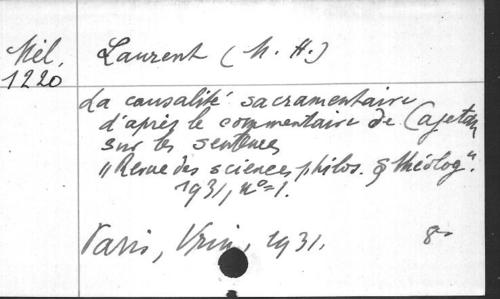 Mél. Laurent (M. H.)
1220
La causalité sacramentaire
d'après le commentaire de Cajetan
sur les sentences
"Revue des sciences philos. & théolog".
1931, n°=1.
Paris, Vrin, 1931. 8°